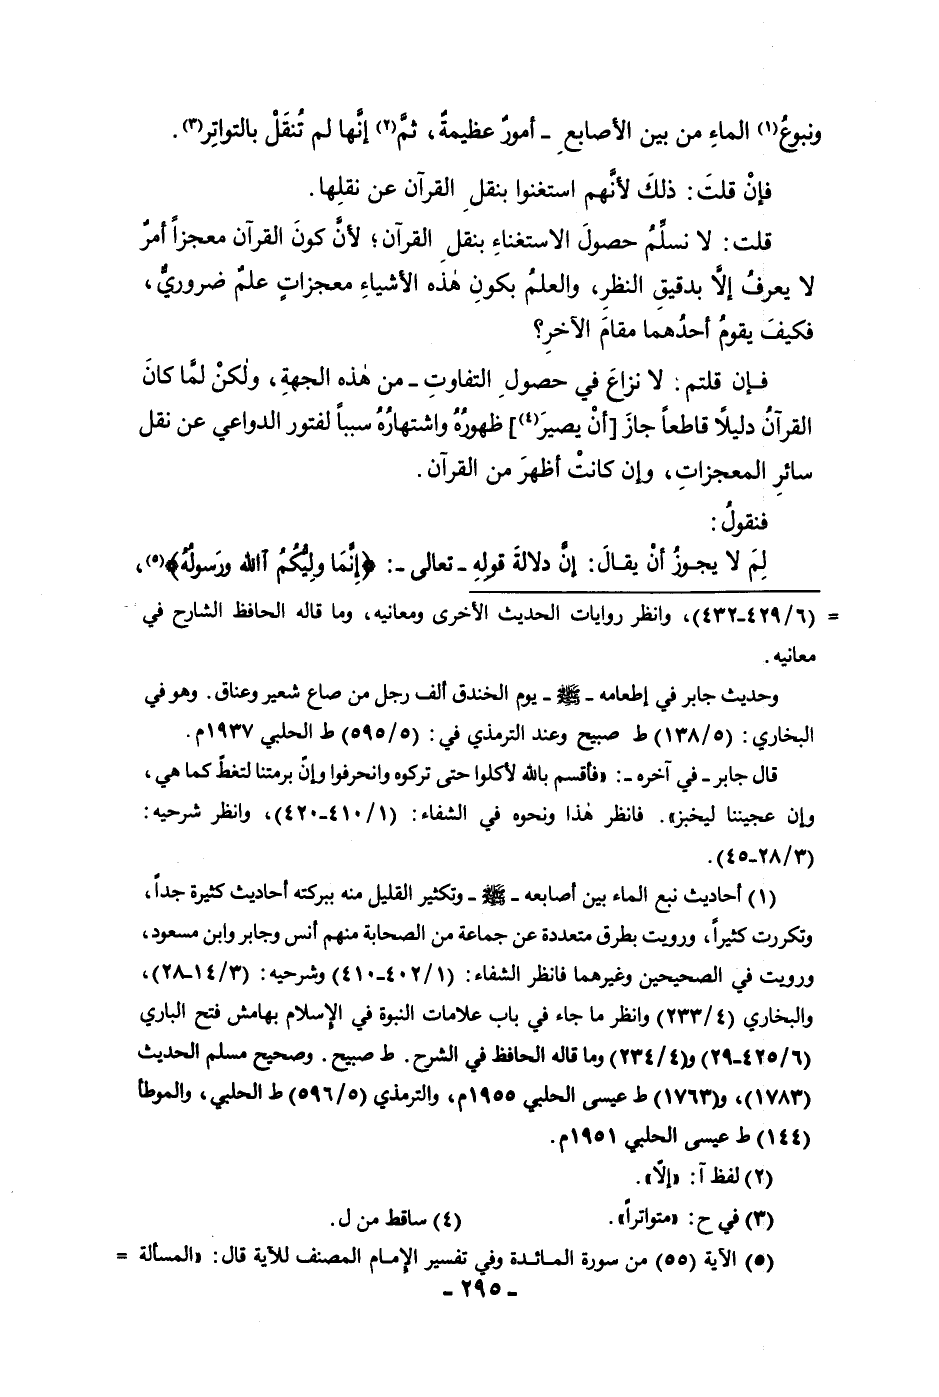 ونبوعُ(١) الماءِ من بين الأصابعِ ـ أمورٌ عظيمةٌ، ثمَّ(٢) إنَّها لم تُنقَلْ بالتواترِ(٣).
فإنْ قلتَ: ذلكَ لأنَّهم استغنوا بنقلِ القرآن عن نقلِها.
قلت: لا نسلِّمُ حصولَ الاستغناءِ بنقلِ القرآن؛ لأنَّ كونَ القرآن معجزاً أمرٌ
لا يعرفُ إلَّا بدقيقِ النظرِ، والعلمُ بكونِ هٰذه الأشياءِ معجزاتٍ علمٌ ضروريٌّ،
فكيفَ يقومُ أحدُهما مقامَ الآخرِ؟
فـإن قلتم: لا نزاعَ في حصولِ التفاوتِ ـ من هٰذه الجهةِ، ولٰكنْ لمَّا كانَ
القرآنُ دليلًا قاطعاً جازَ [أنْ يصيرَ(٤)] ظهورُهُ واشتهارُهُ سبباً لفتور الدواعي عن نقل
سائرِ المعجزاتِ، وإن كانتْ أظهرَ من القرآن.
فنقولُ:
لِمَ لا يجوزُ أنْ يقالَ: إنَّ دلالةَ قولِهِ ـ تعالى ـ: ﴿إِنَّمَا ولِيُّكُمُ ٱللهُ ورَسولُهُ﴾(٥)،
= (٤٢٩/٦-٤٣٢)، وانظر روايات الحديث الأخرى ومعانيه، وما قاله الحافظ الشارح في
معانيه.
وحديث جابر في إطعامه ـ ﷺ ـ يوم الخندق ألف رجل من صاع شعير وعناق. وهو في
البخاري: (١٣٨/٥) ط صبيح وعند الترمذي في: (٥٩٥/٥) ط الحلبي ١٩٣٧م.
قال جابر ـ في آخره ـ: «فأقسم بالله لأكلوا حتى تركوه وانحرفوا وإنّ برمتنا لتغطّ كما هي،
وإن عجيننا ليخبز». فانظر هٰذا ونحوه في الشفاء: (٤١٠/١-٤٢٠)، وانظر شرحيه:
(٢٨/٣-٤٥).
(١) أحاديث نبع الماء بين أصابعه ـ ﷺ ـ وتكثير القليل منه ببركته أحاديث كثيرة جداً،
وتكررت كثيراً، ورويت بطرق متعددة عن جماعة من الصحابة منهم أنس وجابر وابن مسعود،
ورويت في الصحيحين وغيرهما فانظر الشفاء: (٤٠٢/١-٤١٠) وشرحيه: (١٤/٣-٢٨)،
والبخاري (٢٣٣/٤) وانظر ما جاء في باب علامات النبوة في الإسلام بهامش فتح الباري
(٤٢٥/٦-٢٩) و(٢٣٤/٤) وما قاله الحافظ في الشرح. ط صبيح. وصحيح مسلم الحديث
(١٧٨٣)، و(١٧٦٣) ط عيسى الحلبي ١٩٥٥م، والترمذي (٥٩٦/٥) ط الحلبي، والموطأ
(١٤٤) ط عيسى الحلبي ١٩٥١م.
(٢) لفظ آ: «إلّا».
(٣) في ح: «متواتراً». (٤) ساقط من ل.
(٥) الآية (٥٥) من سورة المـائـدة وفي تفسير الإمـام المصنف للآية قال: «المسألة =
ـ ٢٩٥ ـ